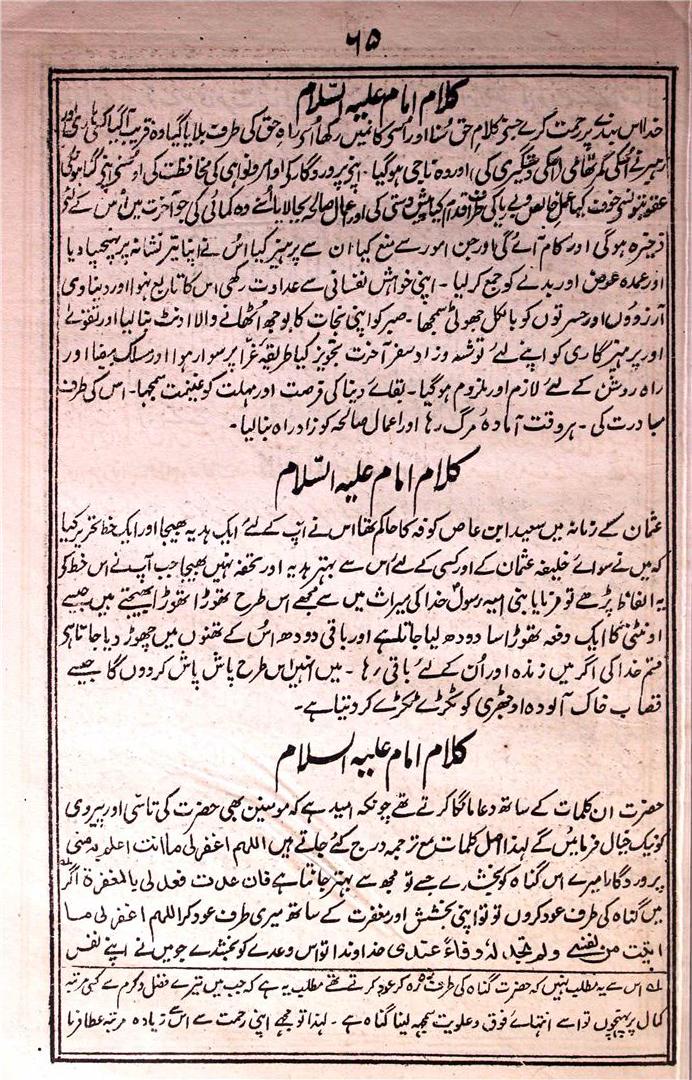 ۶۵
کلام امام علیہ السّلام
خدا اس بندے پر رحمت کرے جس نے کلامِ حق سُنا اور اُسی کا نہیں رکھا اُسے راہِ حق کی طرف بلایا گیا وہ قریب آگیا کسی
رہبر نے اُسکی کمر تھامی (اسکی دستگیری کی) اور وہ ناجی ہوگیا۔ اپنے پروردگار کے اوامر و نواہی کی محافظت کی
خوف کیا عمل خالص و بے ریا کی طرف اقدام کیا پیش دستی کی اور اعمال صالحہ بجا لایا اُسنے وہ کمائی کی جو آخرت میں اُس کے لئے
ذخیرہ ہوگی اور کام آئے گی اور جن امور سے منع کیا ان سے پرہیز کیا اُس نے اپنا تیر نشانہ پر پہنچا دیا
اور عمدہ عوض اور بدلے کو جمع کر لیا۔ اپنی خواہش نفسانی سے عداوت رکھی اس کا تابع نہ ہوا اور دنیاوی
آرزووں اور حسرتوں کو بالکل جھوٹی سمجھا۔ صبر کو اپنی نجات کا بوجھ اُٹھانے والا اونٹ بنا لیا اور تقویٰ
اور پرہیزگاری کو اپنے لئے توشہ و زاد سفر آخرت تجویز کیا طریقہ غرّا پر سوار ہوا اور مسلک بیضا اور
راہ روشن کے لئے لازم اور ملزوم ہوگیا۔ بقائے دنیا کی فرصت اور مہلت کو غنیمت سمجھا۔ اس کی طرف
مبادرت کی۔ ہر وقت آمادۂ مرگ رہا اور اعمال صالحہ کو زاد راہ بنالیا۔
کلام امام علیہ السّلام
عثمان کے زمانہ میں سعید ابن عاص کوفہ کا حاکم تھا اس نے آپ کے لئے ایک ہدیہ بھیجا اور ایک خط تحریر کیا
کہ میں نے سوائے خلیفہ عثمان کے اور کسی کے لئے اُس سے بہتر ہدیہ اور تحفہ نہیں بھیجا جب آپ نے اس خط کے
یہ الفاظ پڑھے تو فرمایا بنی امیہ رسولؐ خدا کی میراث میں سے مجھے اس طرح تھوڑا تھوڑا بھیجتے ہیں جیسے
اونٹنی کا ایک دفعہ تھوڑا سا دودھ لیا جاتا ہے اور باقی دودھ اس کے تھنوں میں چھوڑ دیا جاتا ہے
قسم خدا کی اگر میں زندہ اور اُن کے لئے باقی رہا۔ میں انہیں اس طرح پاش پاش کر دوں گا جیسے
قصاب خاک آلودہ اوجھڑی کو ٹکڑے ٹکڑے کر دیتا ہے۔
کلام امام علیہ السلام
حضرت ان کلمات کے ساتھ دعا مانگا کرتے تھے چونکہ امید ہے کہ مومنین بھی حضرت کی تاسّی اور پیروی
کو نیک خیال فرمائیں گے لہذا اصل کلمات مع ترجمہ درج کئے جاتے ہیں اللھم اغفر لی ما انت اعلم بہ منی
پروردگارا میرے اس گناہ کو بخشدے جسے تو مجھ سے بہتر جانتا ہے فان عدت فعد لی بالمغفرۃ اگر
میں گناہ کی طرف عود کروں تو تو اپنی بخشش اور مغفرت کے ساتھ میری طرف عود کر اللھم اغفر لی ما
من نفسی و لم تجد لہ وفاءً عندی خداوندا تو اس وعدے کو بخشدے جو میں نے اپنے نفس
لے اس سے یہ مطلب نہیں کہ حضرت گناہ کی طرف کر عود کرتے تھے مطلب یہ ہے کہ جب میں تیرے فضل و کرم سے کسی مرتبہ
کمال پر پہنچوں تو اسے انتہائے فوق و علویت سمجھ لینا گناہ ہے۔ لہذا تو مجھے اپنی رحمت سے اس سے زیادہ مرتبہ عطا فرما